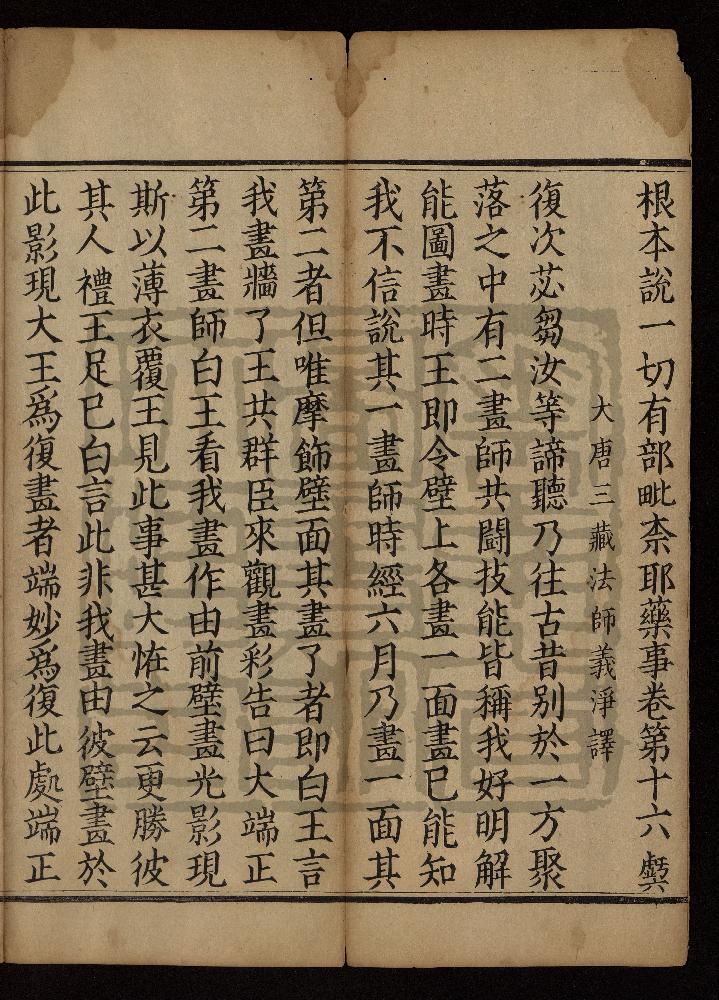 根本說一切有部毗柰耶藥事卷第十六
大唐三藏法師義淨譯
復次苾芻汝等諦聽乃往古昔别於一方聚
落之中有二畫師共鬪技能皆稱我好明解
能圖畫時王即令壁上各畫一面畫已能知
我不信說其一畫師時經六月乃畫一面其
第二者但唯摩飾壁面其畫了者即白王言
我畫牆了王共群臣來觀畫彩告曰大端正
第二畫師白王看我畫作由前壁畫光影現
斯以薄衣覆王見此事甚大恠之云更勝彼
其人禮王足已白言此非我畫由彼壁畫於
此影現大王爲復畫者端妙爲復此處端正